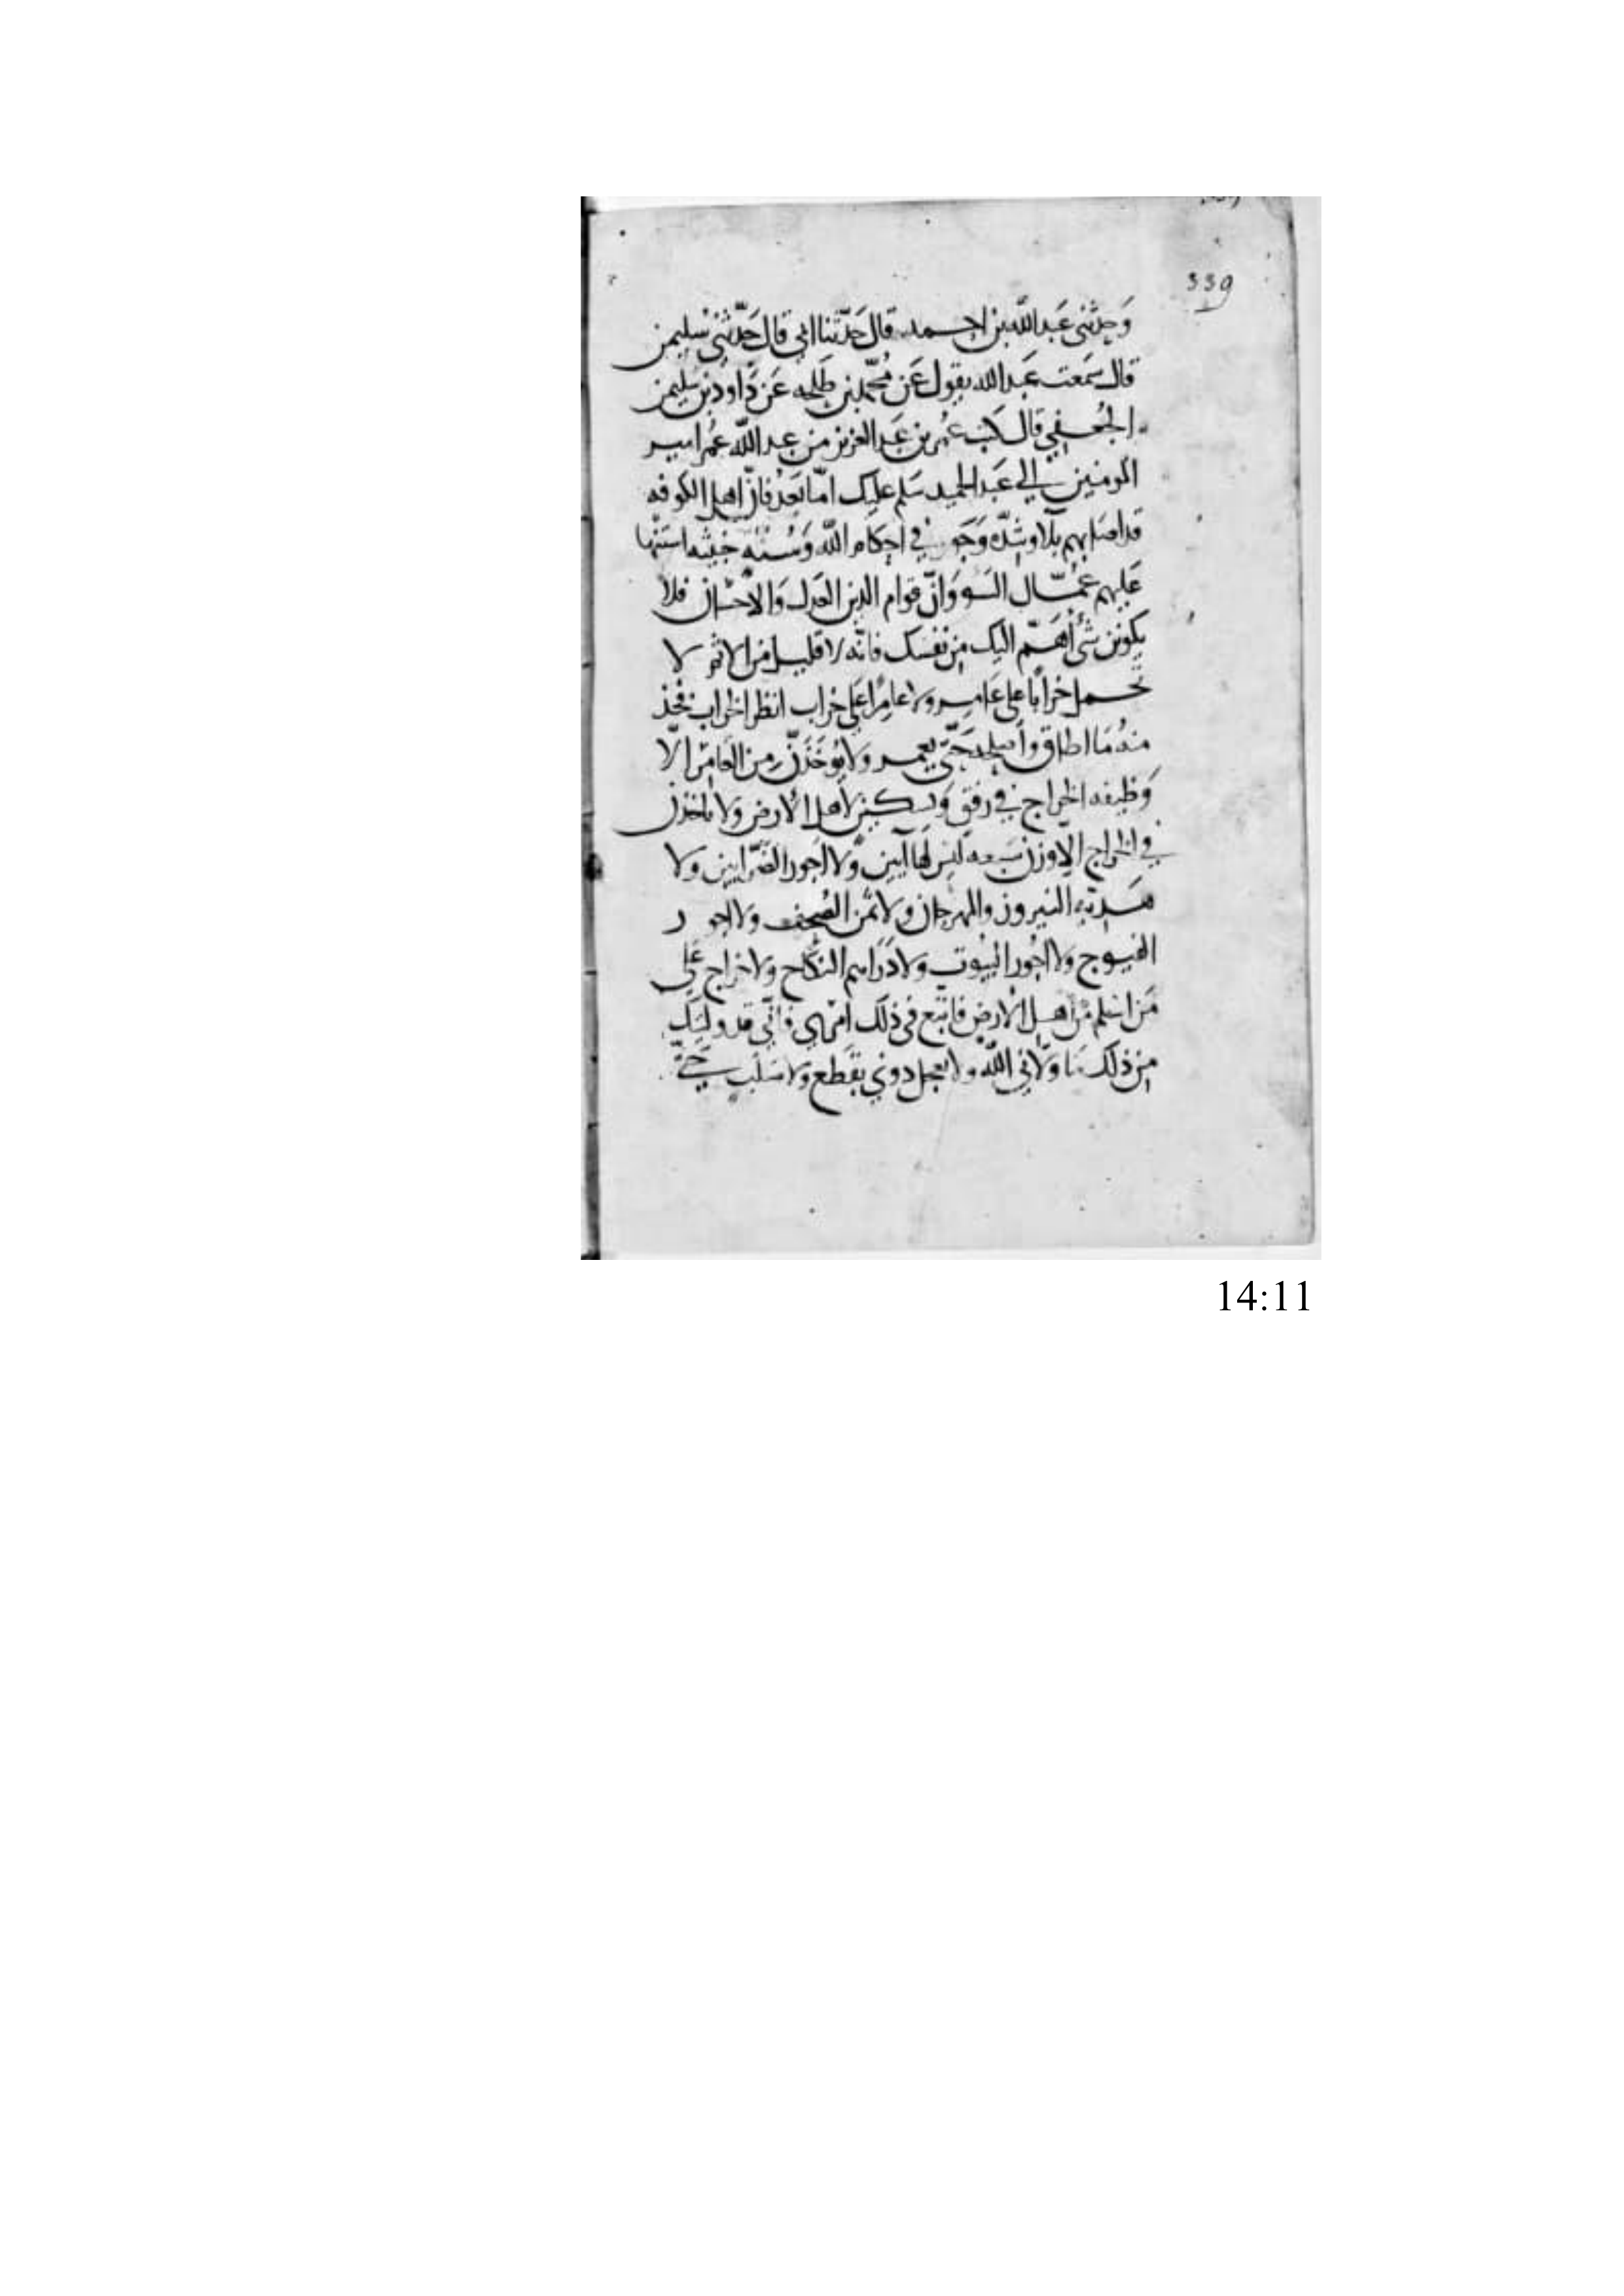 339
وَحدّثني عَبد اللّه بن احمد قال حَدّثنا ابي قال حَدّثني سليمن
قال سَمعت عَبد الله يقول عَن مُحمّد بن طَلحه عَن دَاود بن سُليمن
الجُعفي قال كتب عُمر بن عَبد العزيز من عبد اللّه عُمر امير
المومنين الي عَبد الحميد سَلم عليك امّا بَعدُ فانّ اهل الكوفه
قد اصَابهم بَلآ وشدّه وَجَور في احكام اللّه وَسُنّه خبيثه استنّها
عَليهم عمّال السَو وَانّ قوام الدين العَدل وَالاحسَان فلا
يكونن شئ أهَمّ اليك من نفسك فانّه لا قليل من الاثم لا
تحمل خرابًا على عَامر ولا عامرًا على خراب انظر الخراب فخذ
منهُ مَا اطاق وأصلحه حَتّى يعمر ولا يُوخَذَنّ من العَامر الّا
وَظيفه الخراج في رفق وتسكين لاهل الارض ولا تاخذن
في الخراج الّا وزن سَبعه ليس لهَا آيين وَلا اجور الضّرّابين ولا
هَديّه النيروز والمهرجان ولا ثمن الصُحف ولا اجور
الفيوج ولا اجُور البيُوت ولا دَرَاهم النكَاح ولا خراج علي
مَن اسلم من اهل الارض فاتّبع في ذلك امري فانّي قد ولّيتك
من ذلك مَا ولّاني اللّه ولا تعجل دوني بقطع ولا صَلب حَتّي
14:11